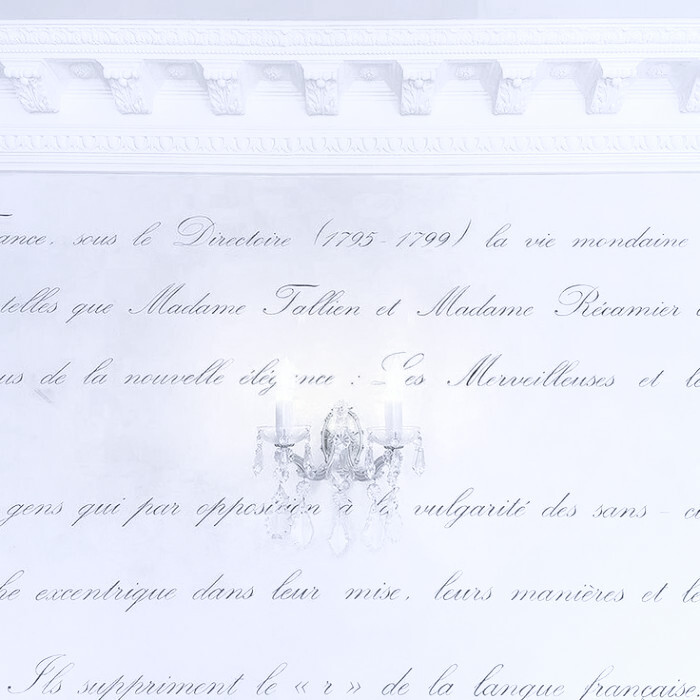 ance, sous le Directoire (1795-1799) la vie mondaine
telles que Madame Tallien et Madame Récamier
us de la nouvelle élégance : Les Merveilleuses et le
gens qui par opposition à la vulgarité des sans-cu
he excentrique dans leur mise, leurs manières et le
Ils suppriment le « r » de la langue française.